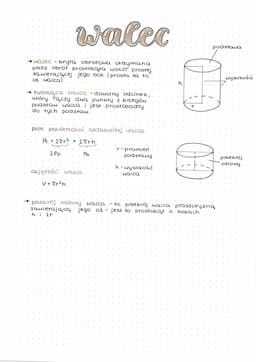 walec
podstawa
→ WALEC - bryła obrotowa otrzymana
przez obrót prostokąta wokół prostej
zawierającej jego bok (prosta ta to
oś walca)
h
wysokość
r
→ tworząca walca - dowolny odcinek,
który łączy dwa punkty z brzegów
podstaw walca i jest prostopadły
do tych podstaw.
pole powierzchni całkowitej walca
Pc = 2πr² + 2πrh
2Pp Pb
r - promień
podstawy
h - wysokość
walca
przekrój
osiowy
objętość walca
V = πr²h
→ przekrój osiowy walca - to przekrój walca płaszczyzną
zawierającą jego oś - jest to prostokąt o bokach
h i 2r